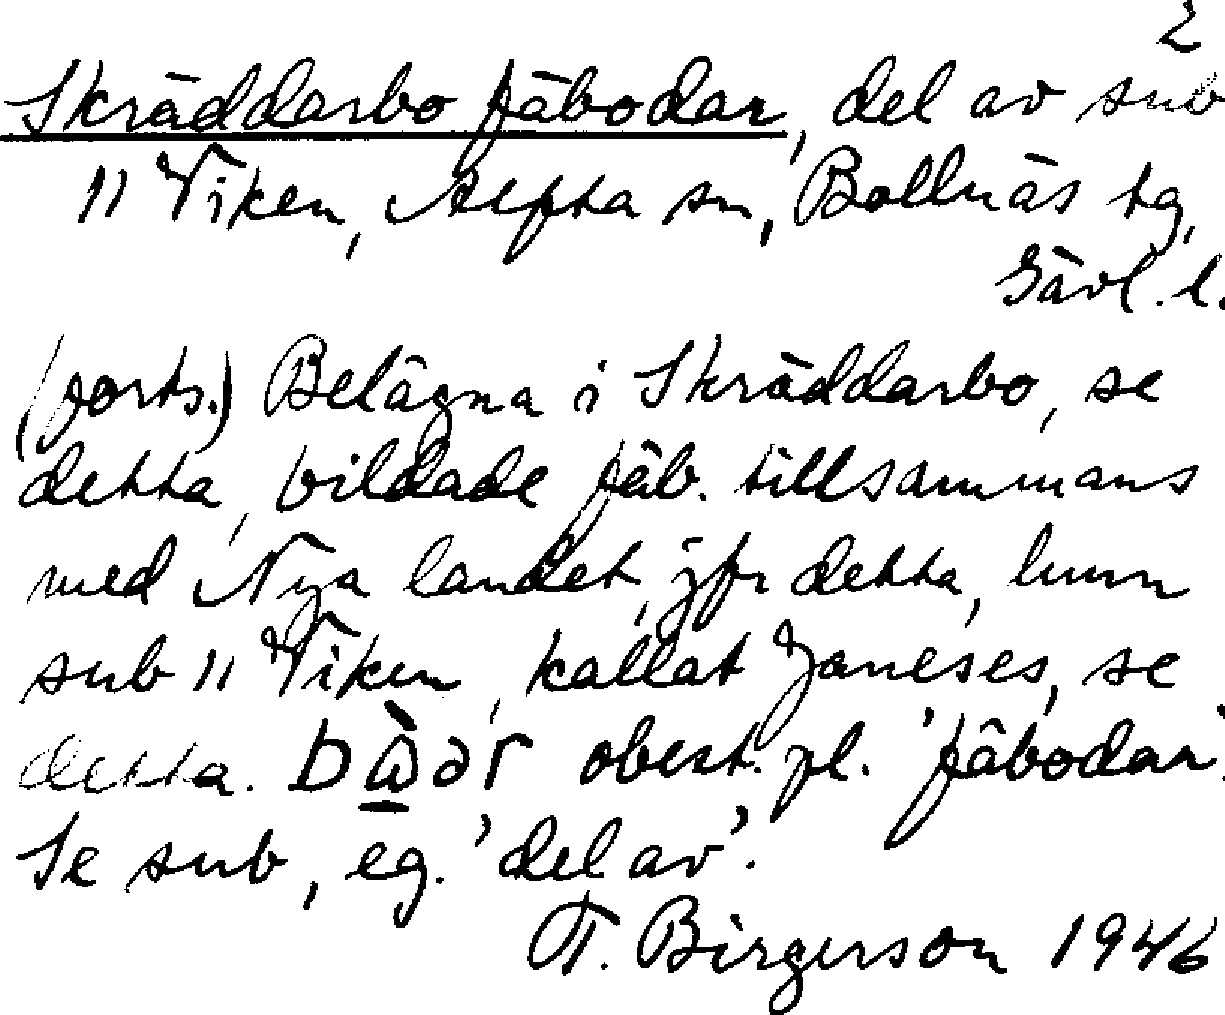 2
Skräddarbo fäbodar, del av sub
11 Viken, Alfta sn, Bollnäs tg,
Gävl. l.
(forts.) Belägna i Skräddarbo, se
detta, bildade fäb. tillsammans
med Nya landet, jfr detta, inom
sub 11 Viken, kallat Janeses, se
detta. obest. pl. 'fäbodar'.
Se sub, eg. 'del av'.
T. Birgerson 1946